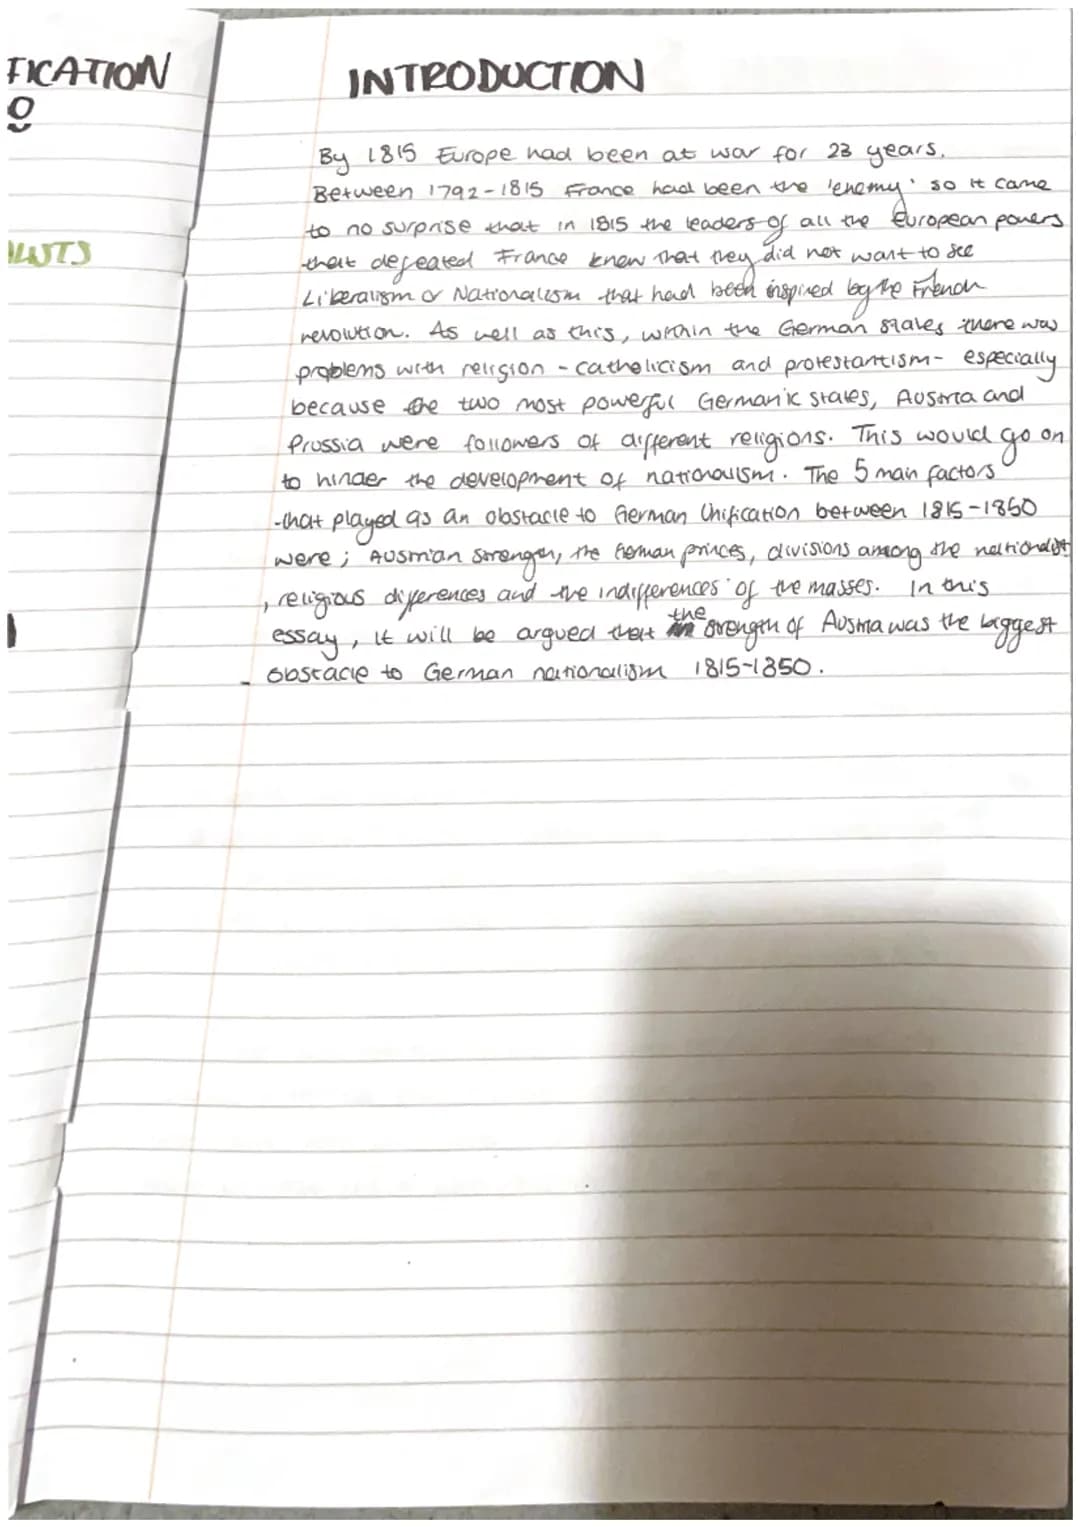 FICATION
O
ALISTS
INTRODUCTION
By 1815 Europe had been at war for 23 years.
Between 1792-1815 France had been the 'enemy' so it came
to no surprise that in 1815 the leaders of all the European powers
that defeated France knew that they did not want to see
Liberalism or Nationalism that had been inspired by the French
revolution. As well as this, within the German states there was
problems with religion - catholicism and protestantism - especially
because the two most powerful Germanic states, Austria and
Prussia were followers of different religions. This would go on
to hinder the development of nationalism. The 5 main factors
that played as an obstacle to German Unification between 1815-1850
were; Austrian strength, the German princes, divisions among the nationalist
, religious differences and the indifferences of the masses. In this
essay, it will be argued that the strength of Austria was the biggest
obstacle to German nationalism 1815-1850.